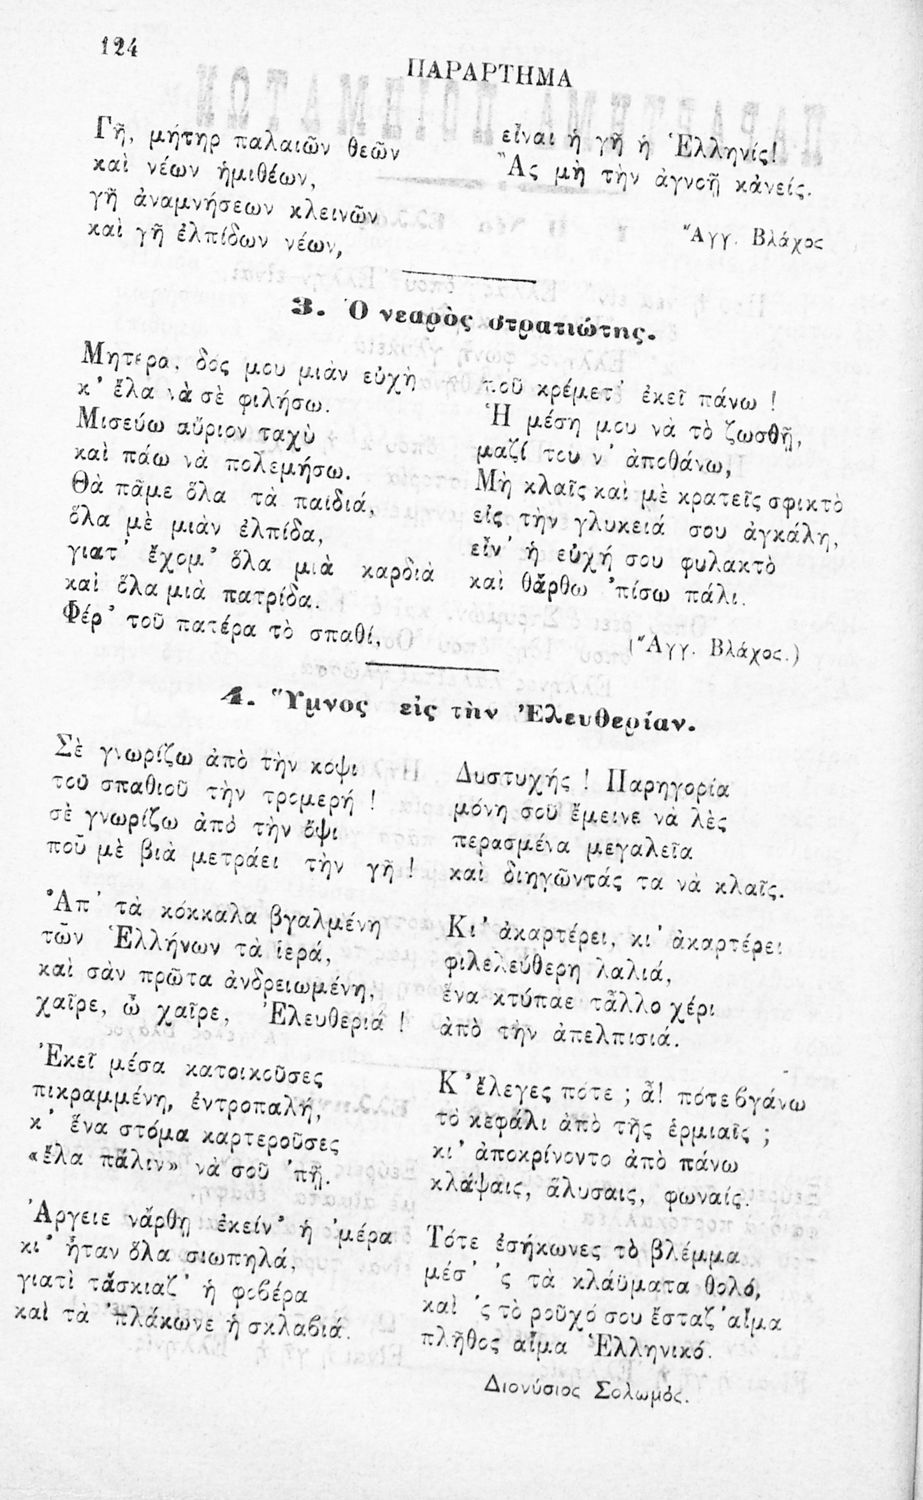 124
ΠΑΡΑΡΤΗΜΑ
Γῆ, μήτηρ παλαιῶν θεῶν
καὶ νέων ἡμιθέων,
γῆ ἀναμνήσεων κλεινῶν
καὶ γῆ ἐλπίδων νέων,
εἶναι ἡ γῆ ἡ Ἑλληνίς!
Ἂς μὴ τὴν ἀγνοῇ κἀνείς.
Ἄγγ. Βλάχος
3. Ὁ νεαρὸς στρατιώτης.
Μητερα, δός μου μιὰν εὐχὴ
κ' ἔλα νὰ σὲ φιλήσω.
Μισεύω αὔριον ταχὺ
καὶ πάω νὰ πολεμήσω.
Θὰ πᾶμε ὅλα τὰ παιδιά,
ὅλα μὲ μιὰν ἐλπίδα,
γιατ' ἔχομ' ὅλα μιὰ καρδιὰ
καὶ ὅλα μιὰ πατρίδα.
Φέρ' τοῦ πατέρα τὸ σπαθί,
ποῦ κρέμετ' ἐκεῖ πάνω !
Ἡ μέση μου νὰ τὸ ζωσθῇ,
μαζί του ν' ἀποθάνω,
Μὴ κλαῖς καὶ μὲ κρατεῖς σφικτὸ
εἰς τὴν γλυκειά σου ἀγκάλη,
εἶν' ἡ εὐχή σου φυλακτὸ
καὶ θἄρθω 'πίσω πάλι.
(Ἄγγ. Βλάχος.)
4. Ὕμνος εἰς τὴν Ἐλευθερίαν.
Σὲ γνωρίζω ἀπὸ τὴν κόψι
τοῦ σπαθιοῦ τὴν τρομερή !
σὲ γνωρίζω ἀπὸ τὴν ὄψι
ποῦ μὲ βιὰ μετράει τὴν γῆ !
Ἀπ' τὰ κόκκαλα βγαλμένη
τῶν Ἑλλήνων τὰ ἱερά,
καὶ σὰν πρῶτα ἀνδρειωμένη,
χαῖρε, ὦ χαῖρε, Ἐλευθεριά !
Ἐκεῖ μέσα κατοικοῦσες
πικραμμένη, ἐντροπαλή,
κ' ἕνα στόμα καρτεροῦσες
«ἔλα πάλιν» νὰ σοῦ 'πῇ.
Ἄργειε νἄρθῃ ἐκείν' ἡ 'μέρα
κι' ἦταν ὅλα σιωπηλά,
γιατὶ τἄσκιαζ' ἡ φοβέρα
καὶ τὰ 'πλάκωνε ἡ σκλαβιά.
Δυστυχής ! Παρηγορία
μόνη σοῦ ἔμεινε νὰ λὲς
περασμένα μεγαλεῖα
καὶ διηγῶντάς τα νὰ κλαῖς.
Κι' ἀκαρτέρει, κι' ἀκαρτέρει
φιλελεύθερη λαλιά,
ἕνα κτύπαε τἆλλο χέρι
ἀπὸ τὴν ἀπελπισιά.
Κ' ἔλεγες πότε ; ἆ! πότε βγάνω
τὸ κεφάλι ἀπὸ τῆς ἐρμιαῖς ;
κι' ἀποκρίνοντο ἀπὸ πάνω
κλάψαις, ἅλυσαις, φωναίς.
Τότε ἐσήκωνες τὸ βλέμμα
μέσ' 'ς τὰ κλάϋματα θολό,
καὶ 'ς τὸ ροῦχό σου ἔσταζ' αἷμα
πλῆθος αἷμα Ἑλληνικό.
Διονύσιος Σολωμός.